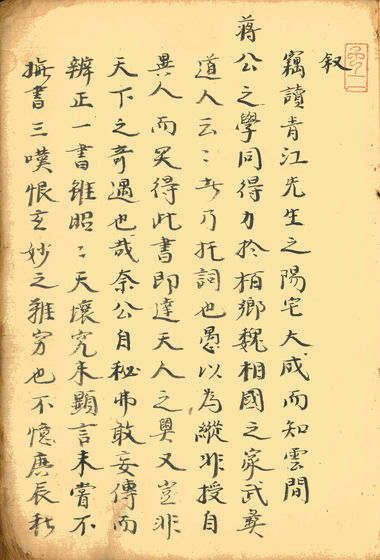 叙
竊讀青江先生之陽宅大成而知雲間
蔣公之學同得力於栢鄉魏相國之家武夷
道人云云者乃托詞也愚以為縱非授自
異人而笑得此書即達天人之奧又豈非
天下之奇遇也哉奈公自秘弗敢妄傳而
辨正一書雖昭昭天壤究未顯言未嘗不
撫書三嘆恨玄妙之難窮也不憶庚辰秋